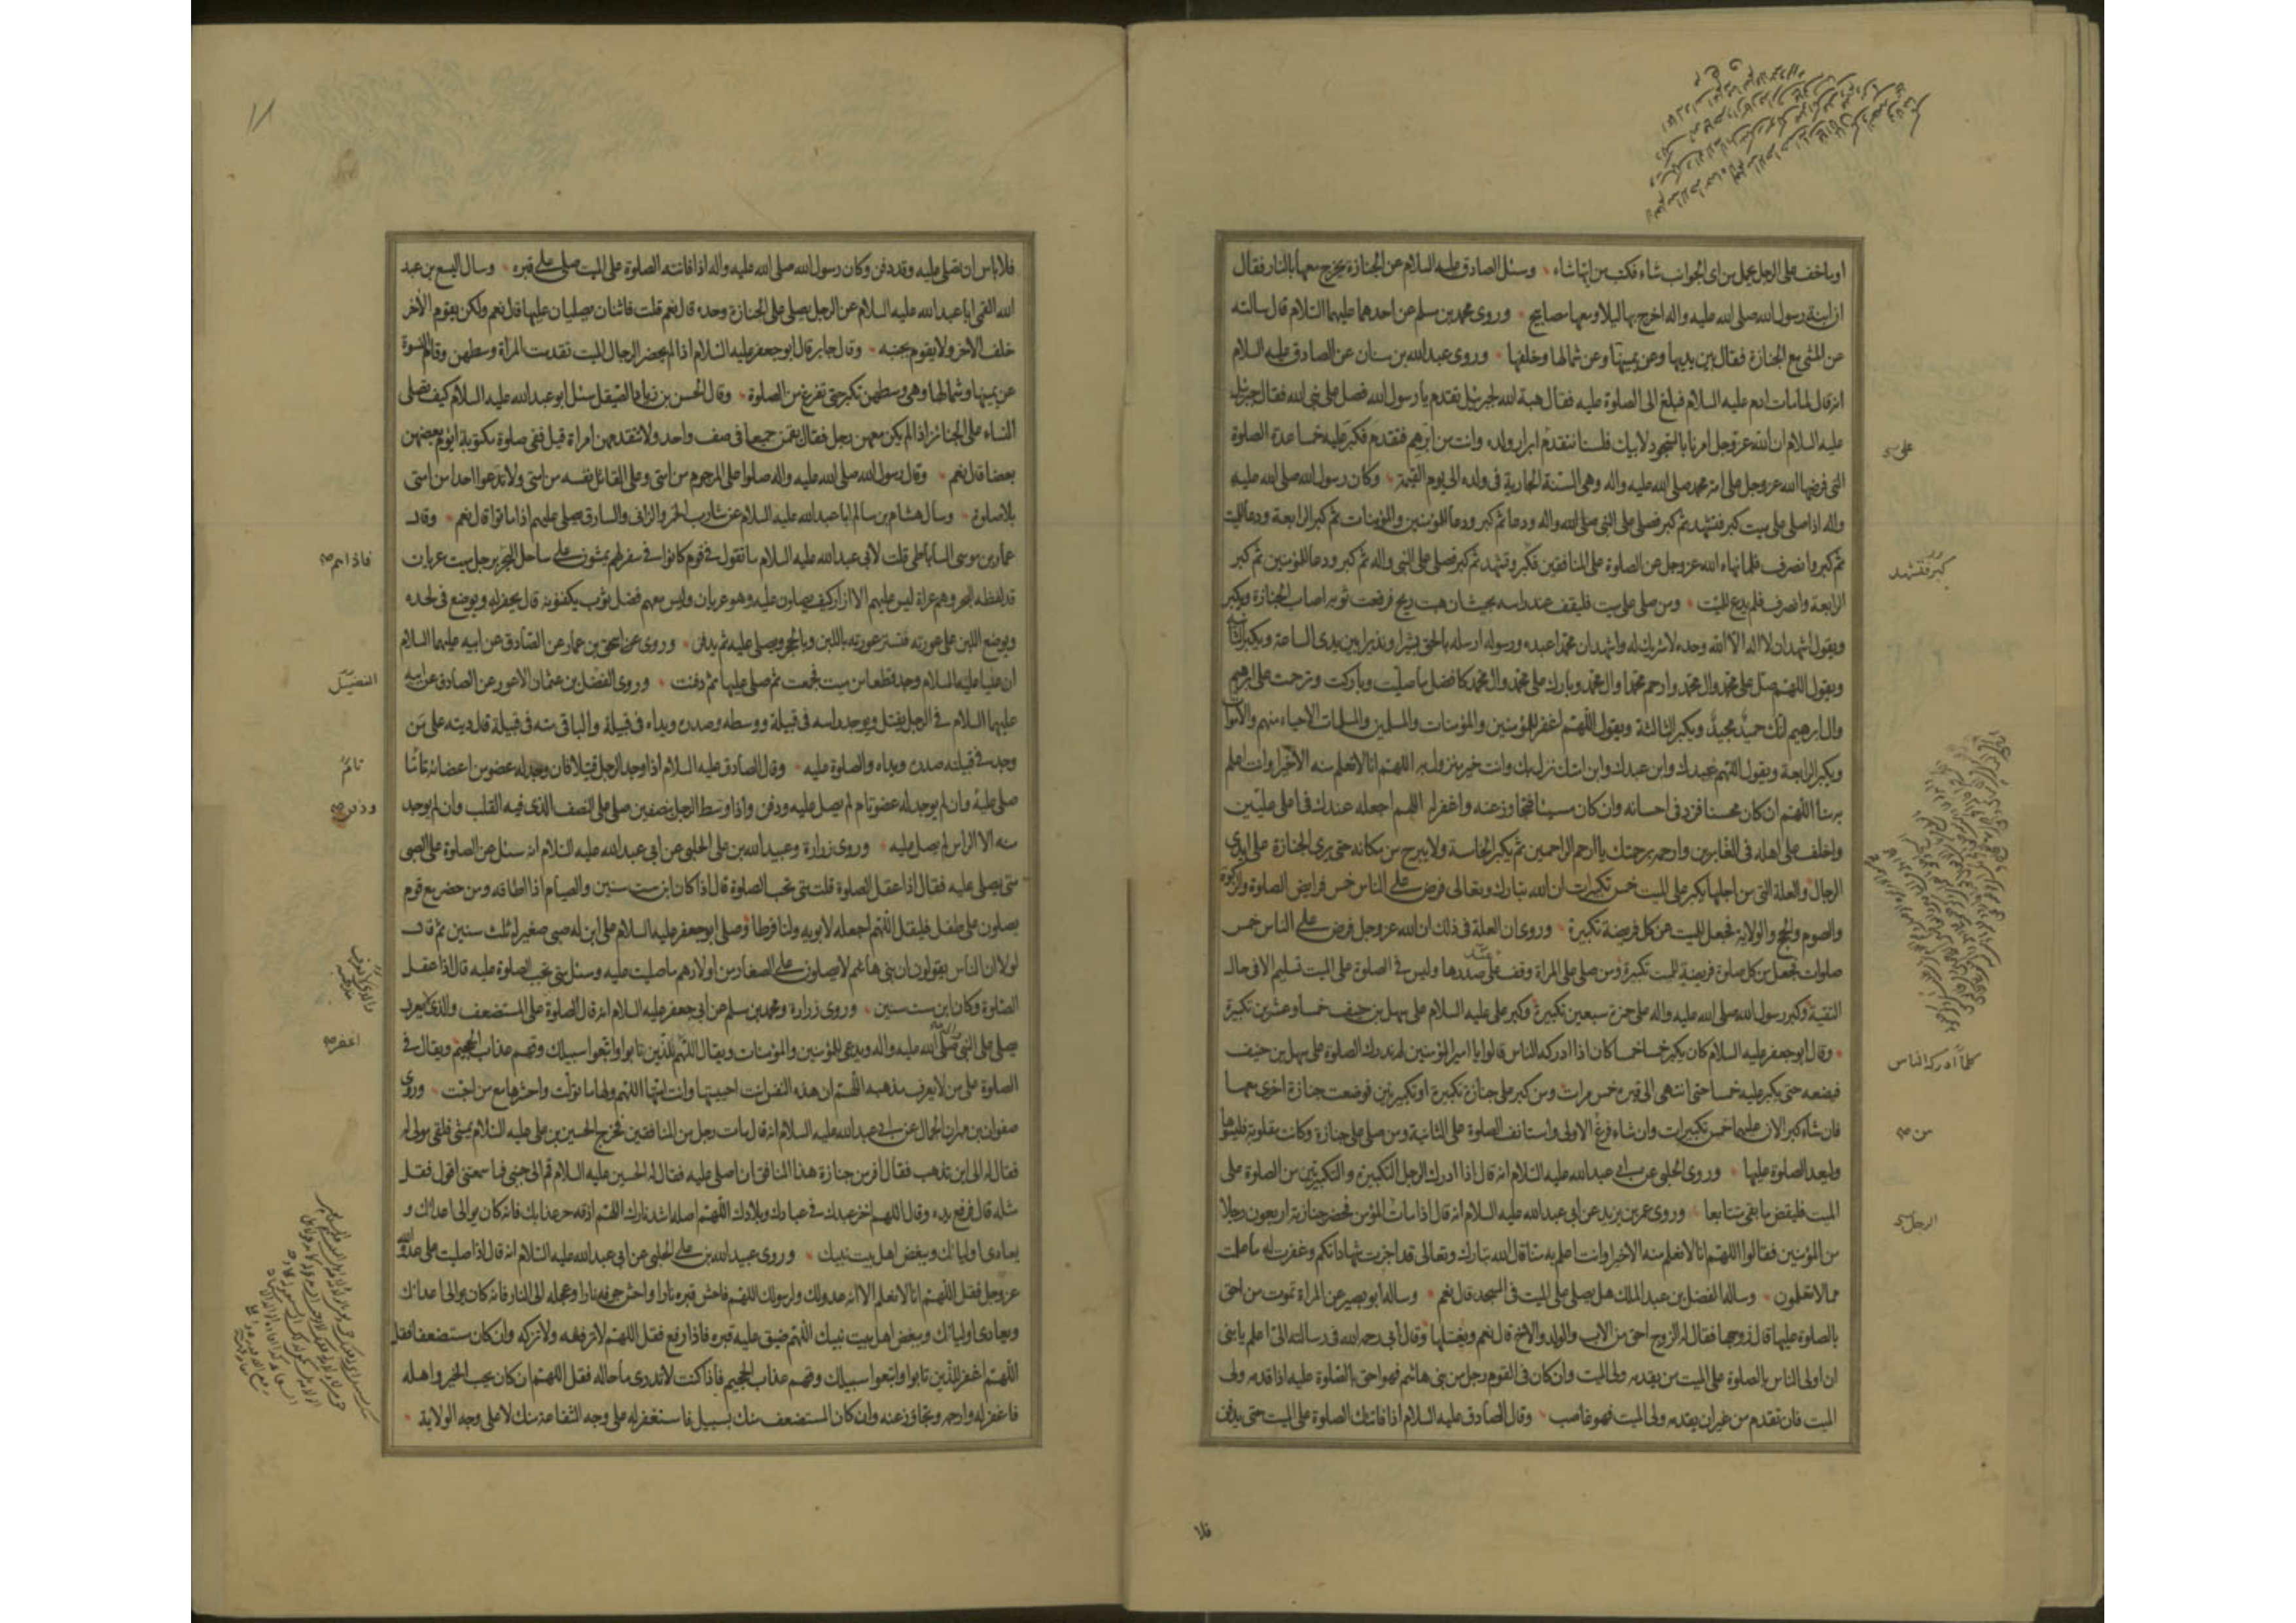 او ما خف على الرجل يحمل من اى الجوانب شاء فكتب من ايها شاء وسئل الصادق عليه السلام عن الجنازة يخرج معها بالنار فقال
ان ابنة رسول الله صلى الله عليه واله اخرج بها ليلا ومعها مصابيح وروى محمد بن مسلم عن احدهما عليهما السلام قال سالته
عن المشى مع الجنازة فقال بين يديها وعن يمينها وعن شمالها وخلفها وروى عبدالله بن سنان عن الصادق عليه السلام
انه قال لما مات ادم عليه السلام فبلغ الى الصلوة عليه فقال هبة الله لجبرئيل تقدم يا رسول الله فصل على نبى الله فقال جبرئيل
عليه السلام ان الله عز وجل امرنا بالسجود لابيك فلسنا نتقدم ابرار ولده وانت من ابرهم فتقدم فكبر عليه خمسا عدة الصلوة
التى فرضها الله عز وجل على امة محمد صلى الله عليه واله وهى السنة الجارية فى ولده الى يوم القيمة وكان رسول الله صلى الله عليه
واله اذا صلى على ميت كبر فتشهد ثم كبر فصلى على النبى صلى الله واله ودعا ثم كبر ودعا للمؤمنين والمؤمنات ثم كبر الرابعة ودعا للميت
ثم كبر وانصرف فلما نهاه الله عز وجل عن الصلوة على المنافقين فكبر وتشهد ثم كبر فصلى على النبى واله ثم كبر ودعا للمؤمنين ثم كبر
الرابعة وانصرف فلم يدع للميت ومن صلى على ميت فليقف عند راسه بحيث ان هبت ريح فرفعت ثوبه اصاب الجنازة ويكبر
ويقول اشهد ان لا اله الا الله وحده لا شريك له واشهد ان محمدا عبده ورسوله ارسله بالحق بشيرا ونذيرا بين يدى الساعة ويكبر الثانية
ويقول اللهم صل على محمد وال محمد وارحم محمدا وال محمد وبارك على محمد وال محمد كافضل ما صليت وباركت وترحمت على ابرهيم
وال ابرهيم انك حميد مجيد ويكبر الثالثة ويقول اللهم اغفر للمؤمنين والمؤمنات والمسلمين والمسلمات الاحياء منهم والاموات
ويكبر الرابعة ويقول اللهم عبدك وابن عبدك وابن امتك نزل بك وانت خير منزول به اللهم انا لا نعلم منه الا خيرا وانت اعلم
به منا اللهم ان كان محسنا فزد فى احسانه وان كان مسيئا فتجاوز عنه واغفر له اللهم اجعله عندك فى اعلى عليين
واخلف على اهله فى الغابرين وارحمه برحمتك يا ارحم الراحمين ثم يكبر الخامسة ولا يبرح من مكانه حتى يرى الجنازة على ايدى
الرجال والعلة التى من اجلها يكبر على الميت خمس تكبيرات ان الله تبارك وتعالى فرض على الناس خمس فرايض الصلوة والزكوة
والصوم والحج والولاية فجعل للميت من كل فريضة تكبيرة وروى ان العلة فى ذلك ان الله عز وجل فرض على الناس خمس
صلوات فجعل من كل صلوة فريضة للميت تكبيرة ومن صلى على المراة وقف عند صدرها وليس فى الصلوة على الميت تسليم الا فى حال
التقية وكبر رسول الله صلى الله عليه واله على حمزة سبعين تكبيرة وكبر على عليه السلام على سهل بن حنيف خمسا وعشرين تكبيرة
وقال ابو جعفر عليه السلام كان يكبر خمسا خمسا كان اذا ادركه الناس قالوا يا امير المؤمنين لم ندرك الصلوة على سهل بن حنيف
فيضعه حتى يكبر عليه خمسا حتى انتهى الى قبره خمس مرات ومن كبر على جنازة تكبيرة او تكبيرتين فوضعت جنازة اخرى معها
فان شاء كبر الان عليهما خمس تكبيرات وان شاء فرغ الاولى واستانف الصلوة على الثانية ومن صلى على جنازة وكانت مقلوبة فليسوها
وليعد الصلوة عليها وروى الحلبى عن ابى عبدالله عليه السلام انه قال اذا ادرك الرجل التكبيرة والتكبيرتين من الصلوة على
الميت فليقض ما بقى متتابعا وروى عمر بن يزيد عن ابى عبدالله عليه السلام انه قال اذا مات المؤمن فحضر جنازته اربعون رجلا
من المؤمنين فقالوا اللهم انا لا نعلم منه الا خيرا وانت اعلم به منا قال الله تبارك وتعالى قد اجزت شهاداتكم وغفرت له ما علمت
مما لا تعلمون وساله الفضل بن عبد الملك هل يصلى على الميت فى المسجد قال نعم وساله ابو بصير عن المراة تموت من احق
بالصلوة عليها قال زوجها فقال له الزوج احق من الاب والولد والاخ قال نعم ويغسلها وقال ابى رحمه الله فى رسالته الى اعلم يا بنى
ان اولى الناس بالصلوة على الميت من يقدمه ولى الميت وان كان فى القوم رجل من بنى هاشم فهو احق بالصلوة عليه اذا قدمه ولى
الميت فان تقدم من غير ان يقدمه ولى الميت فهو غاصب وقال الصادق عليه السلام اذا فاتتك الصلوة على الميت حتى يدفن
على
كبر فتشهد
كلما ادركه الناس
من
الرجل
فلا
فلا باس ان تصلى عليه وقد دفن وكان رسول الله صلى الله عليه واله اذا فاتته الصلوة على الميت صلى على قبره وسال اليسع بن عبد
الله القمى ابا عبدالله عليه السلام عن الرجل يصلى على الجنازة وحده قال نعم قلت فاثنان يصليان عليها قال نعم ولكن يقوم الاخر
خلف الاخر ولا يقوم بجنبه وقال جابر قال ابو جعفر عليه السلام اذا لم يحضر الرجال الميت تقدمت المراة وسطهن وقام النسوة
عن يمينها وشمالها وهى وسطهن تكبر حتى تفرغ من الصلوة وقال الحسن بن زياد الصيقل سئل ابو عبدالله عليه السلام كيف تصلى
النساء على الجنائز اذا لم يكن معهن رجل فقال يقمن جميعا فى صف واحد ولا تتقدمهن امراة قيل ففى صلوة مكتوبة ايؤم بعضهن
بعضا قال نعم وقال رسول الله صلى الله عليه واله صلوا على المرجوم من امتى وعلى القاتل نفسه من امتى ولا تدعوا احدا من امتى
بلا صلوة وسال هشام بن سالم ابا عبدالله عليه السلام عن شارب الخمر والزانى والسارق يصلى عليهم اذا ماتوا قال نعم وقال
عمار بن موسى الساباطى قلت لابى عبدالله عليه السلام ما تقول فى قوم كانوا فى سفر لهم يمشون على ساحل البحر برجل ميت عريان
قد لفظه البحر وهم عراة ليس عليهم الا ازار كيف يصلون عليه وهو عريان وليس معهم فضل ثوب يكفنونه قال يحفر له ويوضع فى لحده
ويوضع اللبن على عورته فتستر عورته باللبن وبالحجر ويصلى عليه ثم يدفن وروى عن اسحق بن عمار عن الصادق عن ابيه عليهما السلام
ان عليا عليه السلام وجد قطعا من ميت فجمعت ثم صلى عليها ثم دفنت وروى الفضل بن عثمان الاعور عن الصادق عن ابيه
عليهما السلام فى الرجل يقتل ويوجد راسه فى قبيلة ووسطه وصدره ويداه فى قبيلة والباقى منه فى قبيلة قال ديته على من
وجد فى قبيلته صدره ويداه والصلوة عليه وقال الصادق عليه السلام اذا وجد الرجل قتيلا فان وجد له عضو من اعضائه تاما
صلى عليه وان لم يوجد له عضو تام لم يصل عليه ودفن واذا وسط الرجل نصفين صلى على النصف الذى فيه القلب وان لم يوجد
منه الا الراس لم يصل عليه وروى زرارة وعبيد الله بن على الحلبى عن ابى عبدالله عليه السلام انه سئل عن الصلوة على الصبى
متى يصلى عليه فقال اذا عقل الصلوة قلت متى تجب الصلوة قال اذا كان ابن ست سنين والصيام اذا اطاقه ومن حضر مع قوم
يصلون على طفل فليقل اللهم اجعله لابويه ولنا فرطا وصلى ابو جعفر عليه السلام على ابن له صبى صغير له ثلث سنين ثم قال
لولا ان الناس يقولون ان بنى هاشم لا يصلون على الصغار من اولادهم ما صليت عليه وسئل متى تجب الصلوة عليه قال اذا عقل
الصلوة وكان ابن ست سنين وروى زرارة ومحمد بن مسلم عن ابى جعفر عليه السلام انه قال الصلوة على المستضعف والذى لا يعرف
يصلى على النبى صلى الله عليه واله ويدعى للمؤمنين والمؤمنات ويقال اللهم للذين تابوا واتبعوا سبيلك وقهم عذاب الجحيم ويقال فى
الصلوة على من لا يعرف مذهبه اللهم ان هذه النفس انت احييتها وانت امتها اللهم ولها ما تولت واحشرها مع من احبت وروى
صفوان بن مهران الجمال عن ابى عبدالله عليه السلام انه قال مات رجل من المنافقين فخرج الحسين بن على عليه السلام يمشى فلقى مولى له
فقال له الى اين تذهب فقال افر من جنازة هذا المنافق ان اصلى عليه فقال له الحسين عليه السلام قم الى جنبى فما سمعتنى اقول فقل
مثله قال فرفع يده وقال اللهم اخز عبدك فى عبادك وبلادك اللهم اصله اشد نارك اللهم اذقه حر عذابك فانه كان يوالى اعدائك و
يعادى اوليائك ويبغض اهل بيت نبيك وروى عبيد الله بن على الحلبى عن ابى عبدالله عليه السلام انه قال اذا صليت على عدو الله
عز وجل فقل اللهم انا لا نعلم الا انه عدو لك ولرسولك اللهم فاحش قبره نارا واحش جوفه نارا وعجله الى النار فانه كان يوالى اعدائك
ويعادى اوليائك ويبغض اهل بيت نبيك اللهم ضيق عليه قبره فاذا رفع فقل اللهم لا ترفعه ولا تزكه وان كان مستضعفا فقل
اللهم اغفر للذين تابوا واتبعوا سبيلك وقهم عذاب الجحيم فاذا كنت لا تدرى ما حاله فقل اللهم ان كان يحب الخير واهله
فاغفر له وارحمه وتجاوز عنه وان كان المستضعف منك بسبيل فاستغفر له على وجه الشفاعة منك لا على وجه الولاية
فاذا هم
الفضيل
تام
ودفن
اغفر